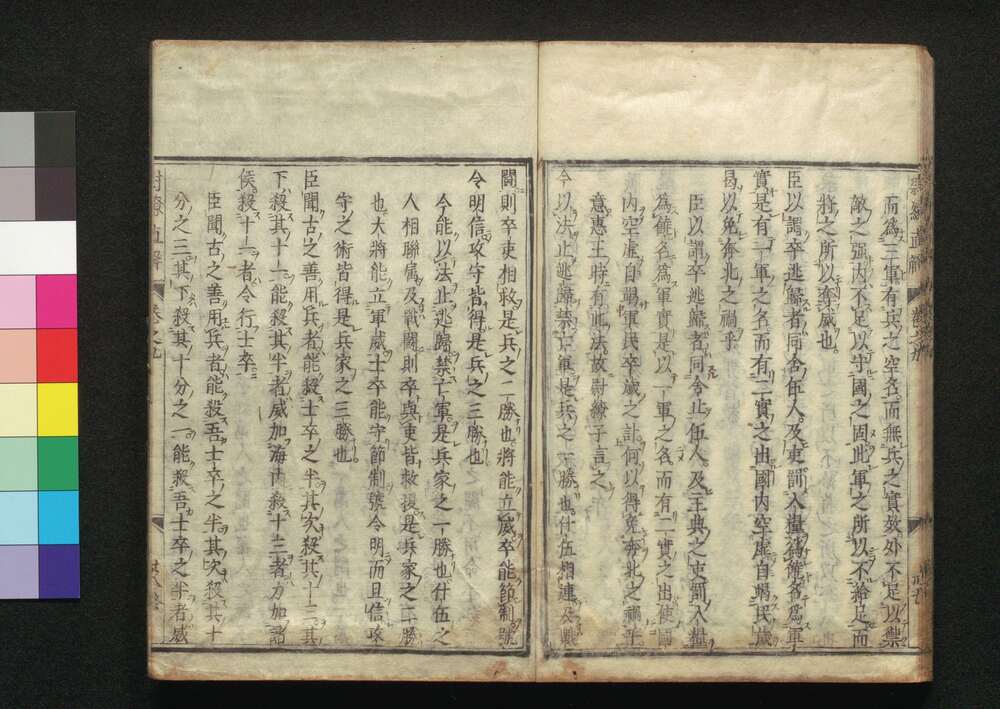 而爲三軍有兵之空名而無兵之實效外不足以禦
敵之强內不足以守國之固此軍之所以不給足而
將之所以奪威也
臣以謂卒逃歸者同舍伍人及吏罰入糧爲饒名爲軍
實是有一軍之名而有二實之出國內空虛自竭民歲
曷以免奔北之禍乎
臣以謂卒逃歸者同舍止伍人及主典之吏罰入糧
爲饒名爲軍實是以一軍之名而有二實之出使國
內空虛自竭軍民卒歲之計何以得免奔北之禍乎
意惠王時有此法故尉繚子言之
今以法止逃歸禁亡軍是兵之一勝也什伍相連及戰
鬬則卒吏相救是兵之二勝也將能立威卒能節制號
令明信攻守皆得是兵之三勝也
今能以法止逃歸禁亡軍是兵家之一勝也什伍之
人相聯屬及戰鬬則卒與吏皆救援是兵家之二勝
也大將能立軍威士卒能守節制號令明而且信攻
守之術皆得是兵家之三勝也
臣聞古之善用兵者能殺士卒之半其次殺其十三其
下殺其十一能殺其半者威加海內殺十三者力加諸
侯殺十一者令行士卒
臣聞古之善用兵者能殺吾士卒之半其次殺其十
分之三其下殺其十分之一能殺吾士卒之半者威
尉繚直解
卷之九